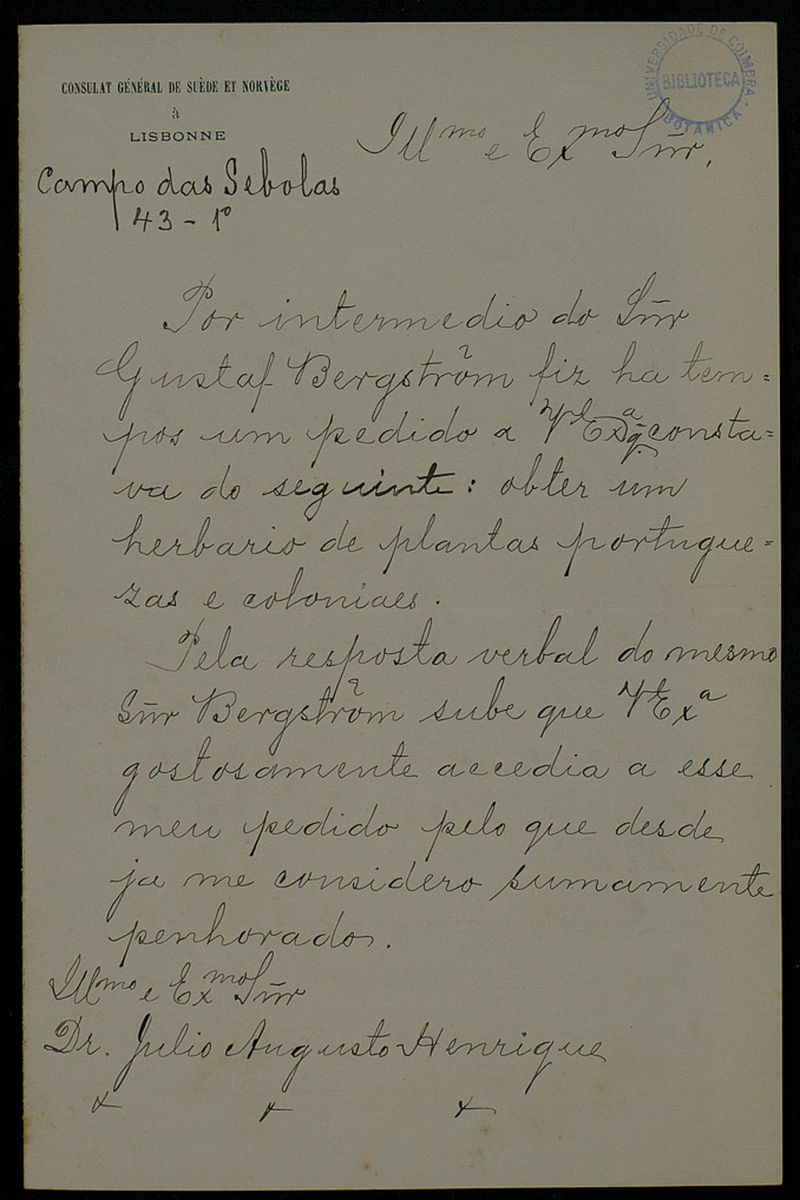 CONSULAT GÉNÉRAL DE SUÈDE ET NORVÈGE
à
LISBONNE
UNIVERSIDADE DE COIMBRA
BIBLIOTECA
BOTANICA
Campo das Sebolas
43 - 1º
Illmo e Exmo Sñr,
Por intermedio do Sñr
Gustaf Bergström fiz ha tem=
pos um pedido a Exa q. consta=
va do seguinte: obter um
herbario de plantas portugue=
zas e coloniaes.
Pela resposta verbal do mesmo
Sñr Bergström sube que Exa
gostosamente accedia a esse
meu pedido pelo que desde
ja me considero sumamente
penhorado.
Illmo e Exmo Sñr
Dr. Julio Augusto Henrique
x x x